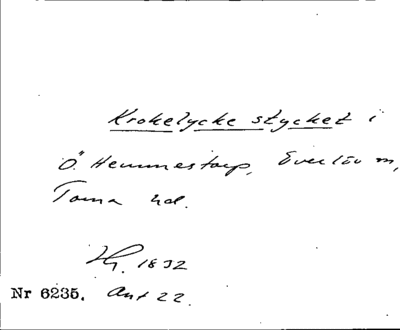 Krokelycke stycket i
Ö. Hemmestorp, Everlöv m,
Torna hd.
Hg. 1832
Nr 6235. Ant 22.